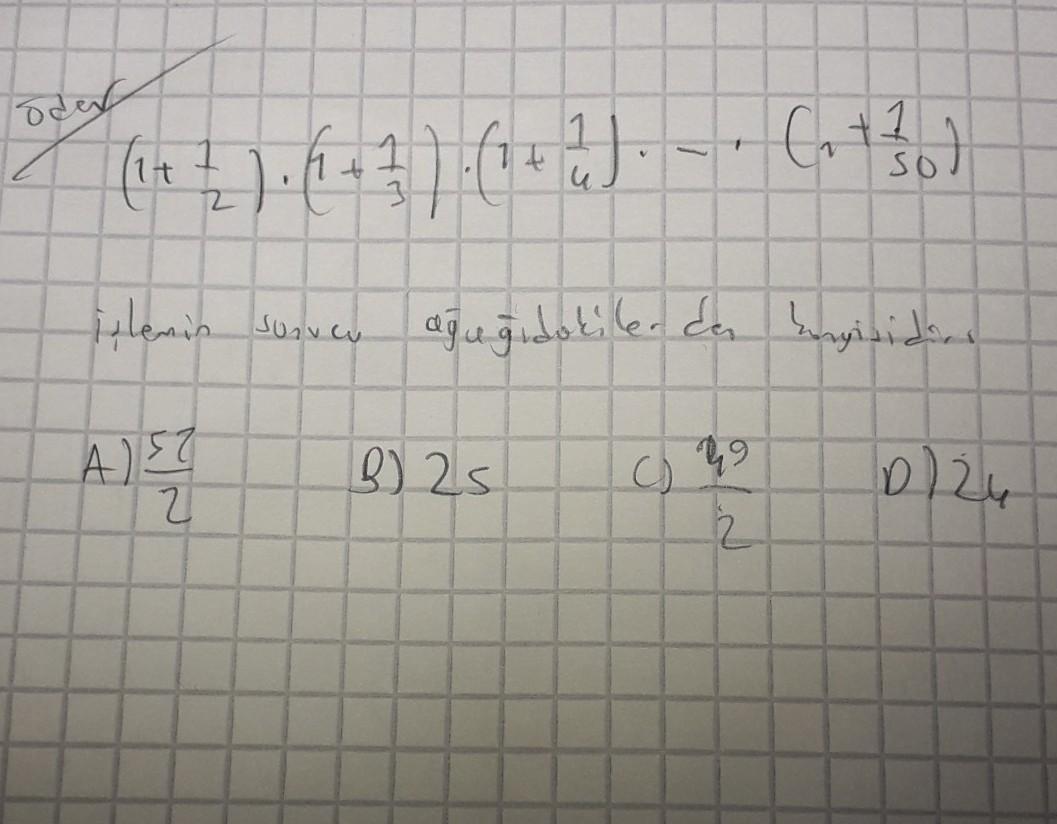 ödev
(1 + 1/2) . (1 + 1/3) . (1 + 1/4) . - . (1 + 1/50)
işlemin sonucu aşağıdakilerden hangisidir
A) 51/2 B) 25 C) 49/2 D) 24